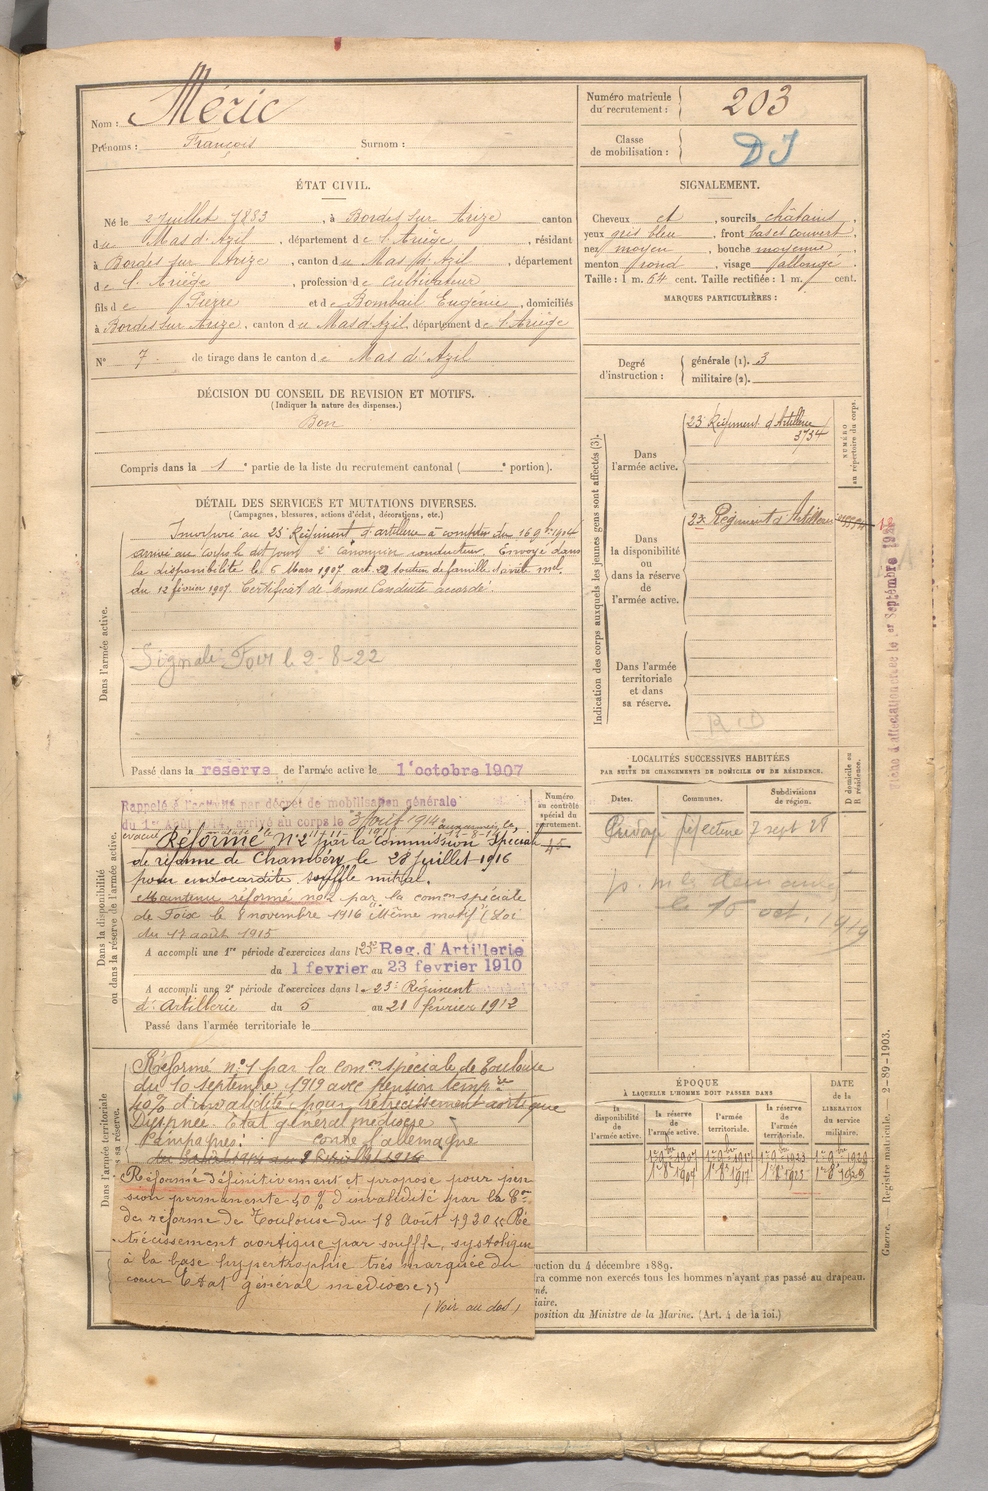 Nom : Méric
Prénoms : François Surnom :
Numéro matricule du recrutement : 203
Classe de mobilisation : DI
ÉTAT CIVIL.
Né le 2 Juillet 1883, à Bordes sur Arize canton
du Mas d'Azil, département de l'Ariège, résidant
à Bordes sur Arize, canton du Mas d'Azil, département
de l'Ariège, profession de Cultivateur
fils de Pierre et de Bombail Eugénie, domiciliés
à Bordes sur Arize, canton du Mas d'Azil, département de l'Ariège
N° 7 de tirage dans le canton de Mas d'Azil
SIGNALEMENT.
Cheveux et, sourcils châtains,
yeux gris bleu, front bas et couvert,
nez moyen, bouche moyenne,
menton rond, visage allongé.
Taille : 1 m. 64 cent. Taille rectifiée : 1 m. cent.
MARQUES PARTICULIÈRES :
Degré d'instruction :
générale (1). 3
militaire (2).
DÉCISION DU CONSEIL DE REVISION ET MOTIFS.
(Indiquer la nature des dispenses.)
Bon
Compris dans la 1e partie de la liste du recrutement cantonal ( e portion).
DÉTAIL DES SERVICES ET MUTATIONS DIVERSES.
(Campagnes, blessures, actions d'éclat, décorations, etc.)
Dans l'armée active.
Incorporé au 23e Régiment d'artillerie à compter du 16 9bre 1904
arrivé au Corps le dit jour 2e Canonnier conducteur. Envoyé dans
la disponibilité le 5 Mars 1907 art. 22 soutien de famille. d'avis mel.
du 12 février 1907. Certificat de bonne Conduite accordé.
Signalé Foix le 2-8-22
Passé dans la réserve de l'armée active le 1er octobre 1907
Indication des corps auxquels les jeunes gens sont affectés (3).
NUMÉRO au répertoire du corps.
Dans l'armée active.
23e Régiment d'Artillerie
3734
Dans la disponibilité ou dans la réserve de l'armée active.
23e Régiment d'Artillerie
Dans l'armée territoriale et dans sa réserve.
R D
Fiche d'affectation créée le 1er Septembre
LOCALITÉS SUCCESSIVES HABITÉES
PAR SUITE DE CHANGEMENTS DE DOMICILE OU DE RÉSIDENCE.
Dates. Communes. Subdivisions de région.
D domicile ou R résidence.
7 sept 28
le 16 oct. 919
Dans la disponibilité ou dans la réserve de l'armée active.
Numéro au contrôle spécial du recrutement.
45
Rappelé à l'activité par décret de mobilisation générale
du 1er Août 1914, arrivé au corps le 3 Août 1914
Réformé N°2 par la Commission Spéciale
de réforme de Chambéry le 28 Juillet 1916
pour endocardite, souffle mitral.
Maintenu réformé no2 par la comon spéciale
de Foix le 8 novembre 1916 "Même motif" (Loi
du 17 août 1915
A accompli une 1re période d'exercices dans l 23e Reg. d'Artillerie
du 1 fevrier au 23 fevrier 1910
A accompli une 2e période d'exercices dans le 23e Régiment
d'Artillerie du 5 au 21 février 1912
Passé dans l'armée territoriale le
Dans l'armée territoriale et sa réserve.
Réformé n°1 par la comon spéciale de Toulouse
du 10 septembre 1919 avec pension tempre
40% d'invalidité, pour rétrécissement aortique
Dyspnée. Etat général médiocre
Campagnes : contre l'allemagne
Réformé définitivement et proposé pour pen
sion permanente 40% d'invalidité par la Con
de réforme de Toulouse du 18 Août 1920 "Ré
trécissement aortique par souffle, systolique
à la base hypertrophie très marquée du
cœur Etat général médiocre"
(Voir au dos)
ÉPOQUE
À LAQUELLE L'HOMME DOIT PASSER DANS
la disponibilité de l'armée active.
la réserve de l'armée active.
l'armée territoriale.
la réserve de l'armée territoriale.
DATE DE LA LIBÉRATION du service militaire.
uction du 4 décembre 1889.
ra comme non exercés tous les hommes n'ayant pas passé au drapeau.
né.
iaire.
position du Ministre de la Marine. (Art. 4 de la loi.)
Guerre. — Registre matricule. — 2-89-1903.